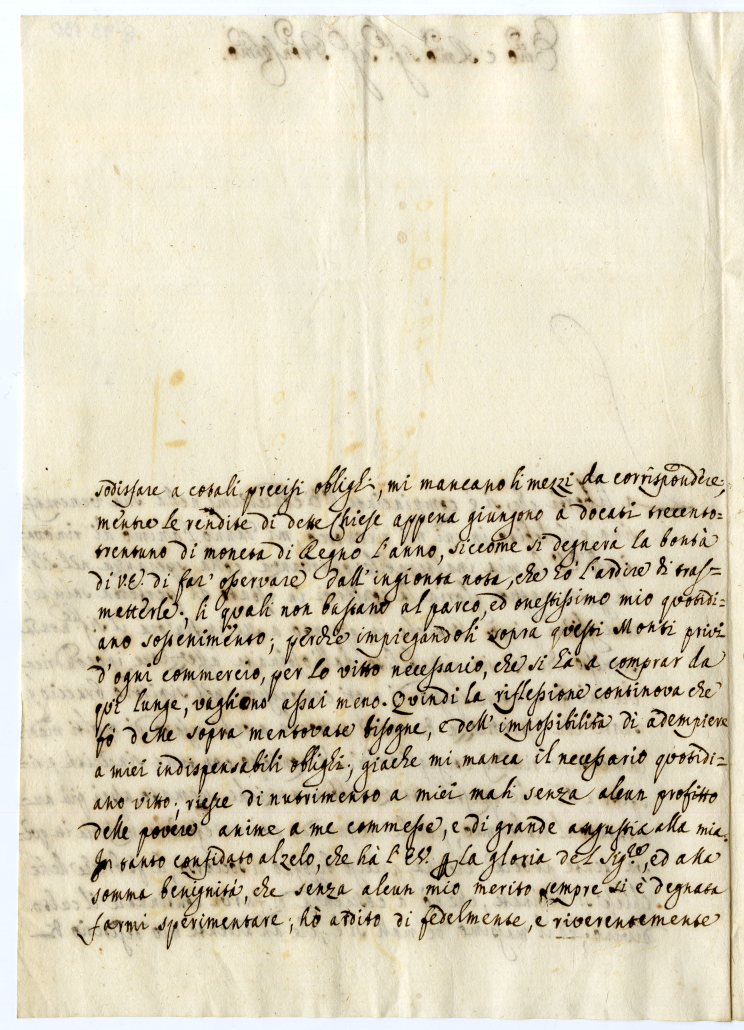 sodisfare a cotali precisi oblighi, mi mancano li mezzi da corrispondere;
mentre le rendite di dette Chiese appena giungono à docati trecento=
trentuno di moneta di Regno l'anno, siccome si degnerà la bontà
di VE di far' osservare dall'ingionta nota, che hò l'ardire di tras=
metterle; li quali non bastano al parco, ed onestissimo mio quotidi=
ano sostenimento; perche impiegandoli sopra questi Monti privi
d'ogni commercio, per lo vitto necessario, che si hà à comprar da
qui lunge, vagliono assai meno. Quindi la riflessione continova che
fò delle sopra mentovate bisogne, e dell'impossibilità di adempiere
a miei indispensabili oblighi; giache mi manca il necessario quotidi=
ano vitto; riesce di nutrimento a miei mali senza alcun profitto
delle povere anime a me commesse, e di grande angustia alla mia.
In tanto confidato al zelo, che hà l'EV. per la gloria del Sig.re, ed alla
somma benignità, che senza alcun mio merito sempre si è degnata
farmi sperimentare; hò ardito di fedelmente, e riverentemente